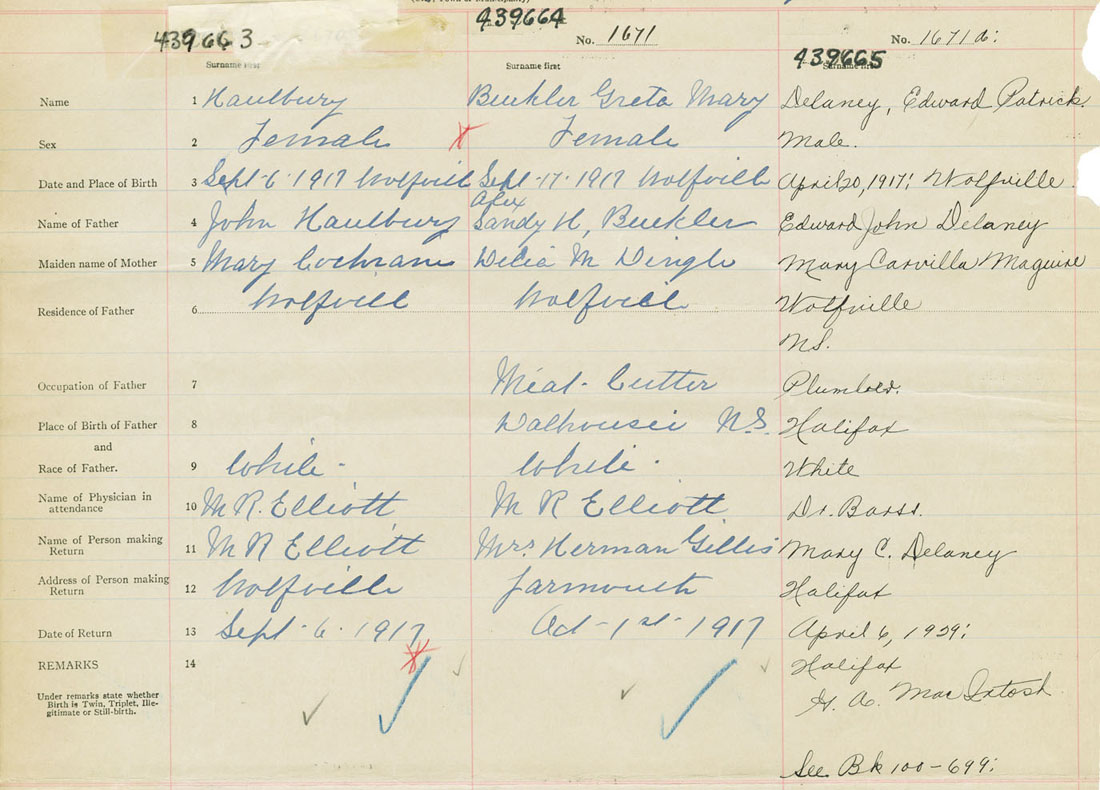 439663
439664
No. 1671
No. 1671a:
439665
Surname first
Surname first
Surname first
Name 1 Haulbury Buckler Greta Mary Delaney, Edward Patrick.
Sex 2 Female Female Male.
Date and Place of Birth 3 Sept-6-1917 Wolfvill Sept-17-1917 Wolfvill April 20, 1917: Wolfville.
Alex
Name of Father 4 John Haulbury Sandy H, Buckler Edward John Delaney
Maiden name of Mother 5 Mary Cochrane Delia M Dingle Mary Carvilla Maguire
Residence of Father 6 Wolfvill Wolfvill Wolfville
N.S.
Occupation of Father 7 Meat-Cutter Plumber.
Place of Birth of Father 8 Dalhousie N.S. Halifax
and
Race of Father. 9 White- White- White
Name of Physician in
attendance 10 M R. Elliott M R Elliott Dr. Barss.
Name of Person making
Return 11 M R Elliott Mrs Herman Gillis Mary C. Delaney
Address of Person making
Return 12 Wolfville Yarmouth Halifax
Date of Return 13 Sept-6-1917 Oct-1st-1917 April 6, 1929:
REMARKS 14 Halifax
Under remarks state whether
Birth is Twin, Triplet, Ille-
gitimate or Still-birth.
MacIntosh
See Bk 100-699: